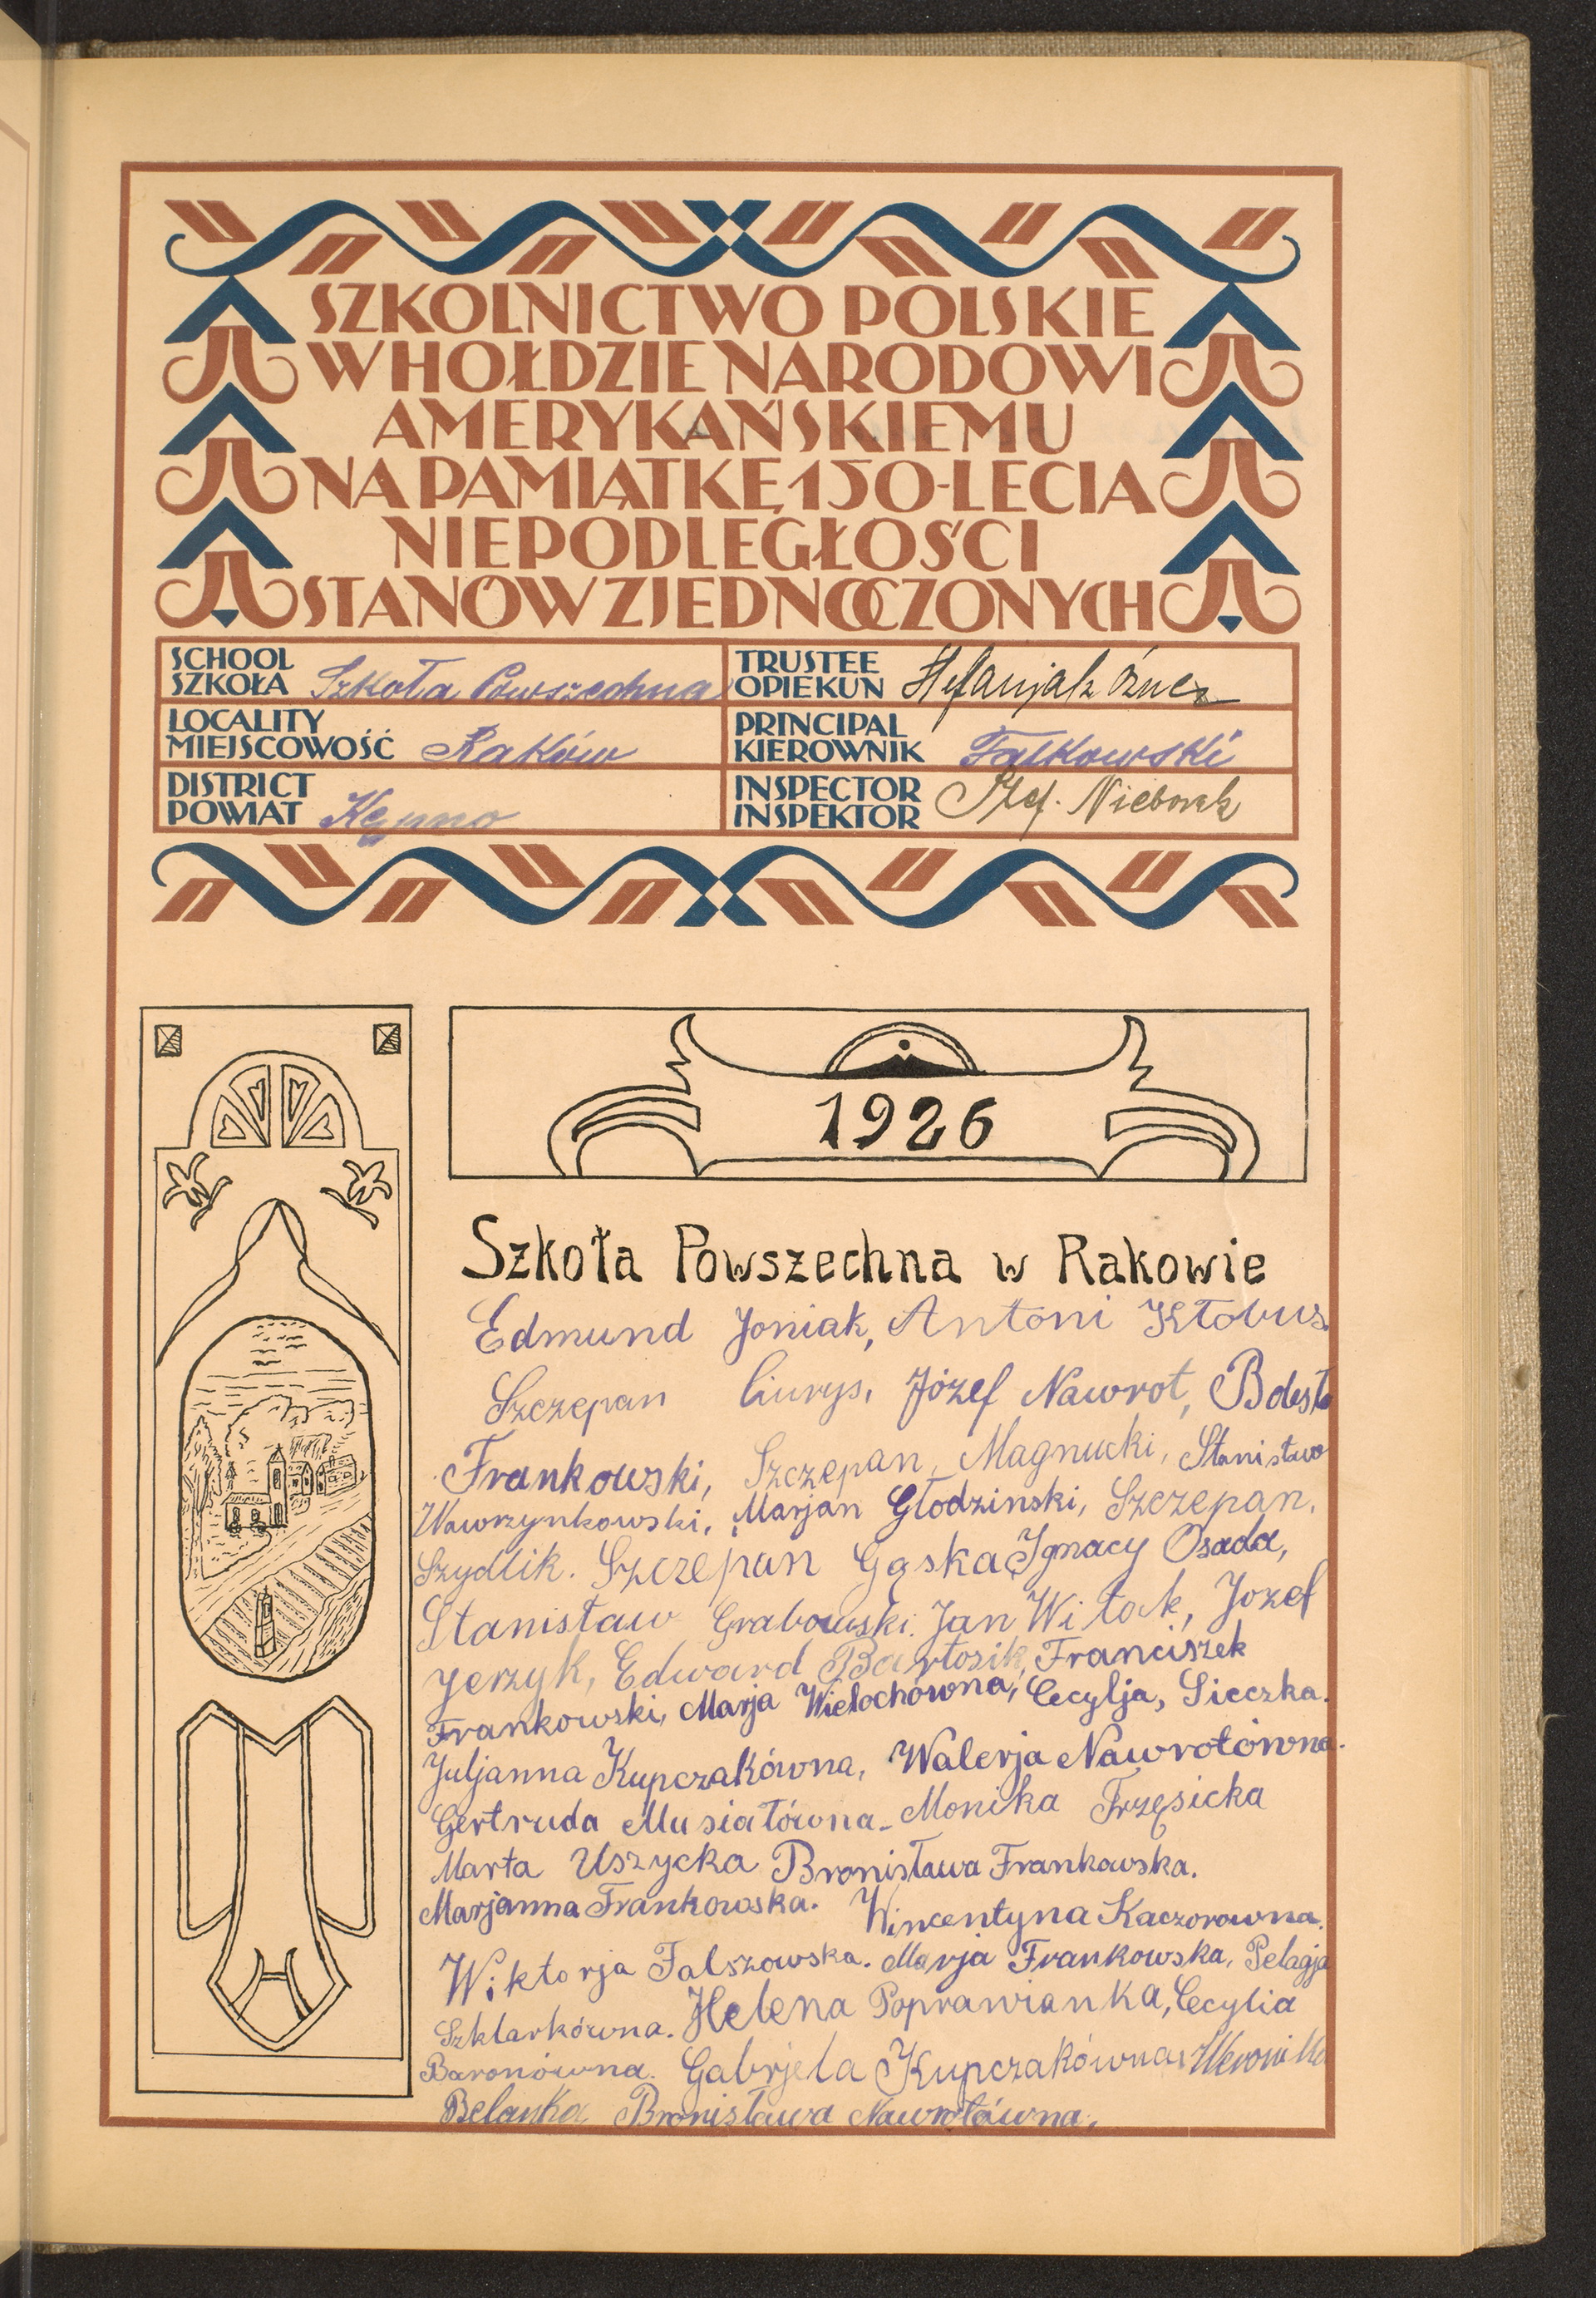 SZKOLNICTWO POLSKIE
W HOŁDZIE NARODOWI
AMERYKAŃSKIEMU
NA PAMIĄTKĘ 150-LECIA
NIEPODLEGŁOŚCI
STANÓW ZJEDNOCZONYCH
SCHOOL
SZKOŁA Szkoła Powszechna
TRUSTEE
OPIEKUN
LOCALITY
MIEJSCOWOŚĆ Raków
PRINCIPAL
KIEROWNIK Falkowski
DISTRICT
POWIAT Kępno
INSPECTOR
INSPEKTOR
1926
Szkoła Powszechna w Rakowie
Edmund Joniak, Antoni Kłobus.
Szczepan Ciurys, Józef Nawrot,
Frankowski, Szczepan, Magnucki, Stanisław
Wawrzynkowski, Marjan Głodzinski, Szczepan,
Szydlik. Szczepan Gąska, Ignacy Osada,
Stanisław Grabowski. Jan Witak, Jozef
Jerzyk, Edward Bartosik, Franciszek
Frankowski, Marja Wielochówna, Cecylja, Sieczka.
Juljanna Kupczakówna, Walerja Nawrotówna.
Gertruda Musiałówna. Monika Trzęsicka
Marta Uszycka Bronisława Frankowska.
Marjanna Frankowska. Wincentyna Kaczorowna.
Wiktorja Falszowska. Marja Frankowska, Pelagja
Szklarkówna. Helena Poprawianka, Cecylia
Baronówna. Gabrjela Kupczakówna,
Belanka Bronisława Nawrotówna.